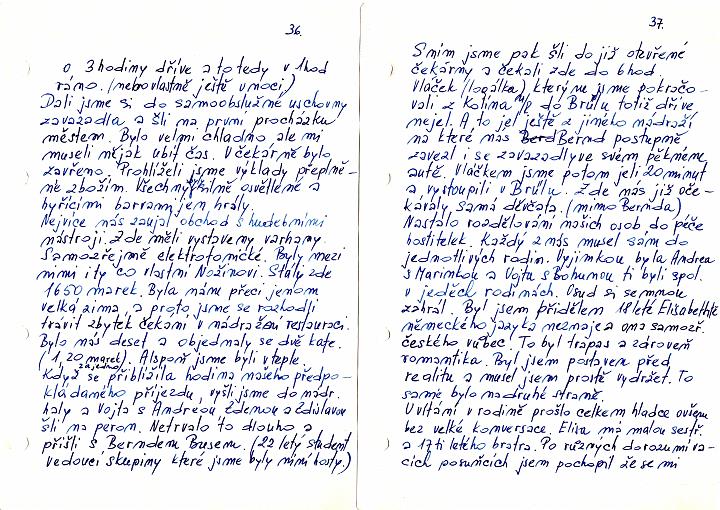 36.
o 3 hodiny dříve a to tedy v 1 hod
ráno. (nebo vlastně ještě v noci)
Dali jsme si do samoobslužné uschovny
zavazadla a šli na první procházku
městem. Bylo velmi chladno ale mi
museli nějak ubít čas. V čekárně bylo
zavřeno. Prohlíželi jsme výklady přeplně-
né zbožím. Všechny silně osvětlené a
hýřícími barvami jen hrály.
Nejvíce nás zaujal obchod s hudebními
nástroji. Zde měli vystaveny varhany.
Samozřejmě elektrofonické. Byly mezi
nimi i ty co vlastní Nožinovi. Stály zde
1650 marek. Byla nám přeci jenom
velká zima, a proto jsme se rozhodli
trávit zbytek čekání v nádražní restauraci.
Bylo nás deset a objednaly se dvě kafe.
(1,20 marek). Alspoň jsme byli v teple.
za jedno
Když se přiblížila hodina našeho předpo-
kládaného příjezdu, vyšli jsme do nádr.
haly a Vojta s Andreou Zdenou a Zdislavou
šli na peron. Netrvalo to dlouho a
přišli s Berndem Busemu. (22 letý student
vedoucí skupiny které jsme byly nimi hosty.)
37.
S ním jsme pak šli do již otevřené
čekárny a čekali zde do 6 hod.
Vláček (logálka) kterým jsme pokračo-
vali z Kolína n/R do Brülu totiž dříve
nejel. A to jel ještě z jiného nádraží
na které nás Bernd postupně
zavezl i se zavazadly ve svém pěkném
autě. Vláčkem jsme potom jeli 20 minut
a vystoupili v Brülu. Zde nás již oče-
kávaly samá děvčata. (mimo Bernda)
Nastalo rozdělování našich osob do péče
hostitelek. Každý z nás musel sám do
jednotlivých rodin. Vyjímkou byla Andrea
s Marimkou a Vojta s Bohumou ti byli spol.
v jedněch rodinách. Osud si se mnou
zahrál. Byl jsem přidělem 18 leté Elisabethě
německého jazyka neznaje a ona samozř.
českého vůbec. To byl trapas a zdroveň
romantika. Byl jsem postaven před
realitu a musel jsem prostě vydržet. To
samé bylo na druhé straně.
Uvítání v rodině prošlo celkem hladce ovšem
bez velké konversace. Elisa má malou sestř.
a 17ti letého bratra. Po různých dorozumíva-
cích posuňcích jsem pochopil že se mi